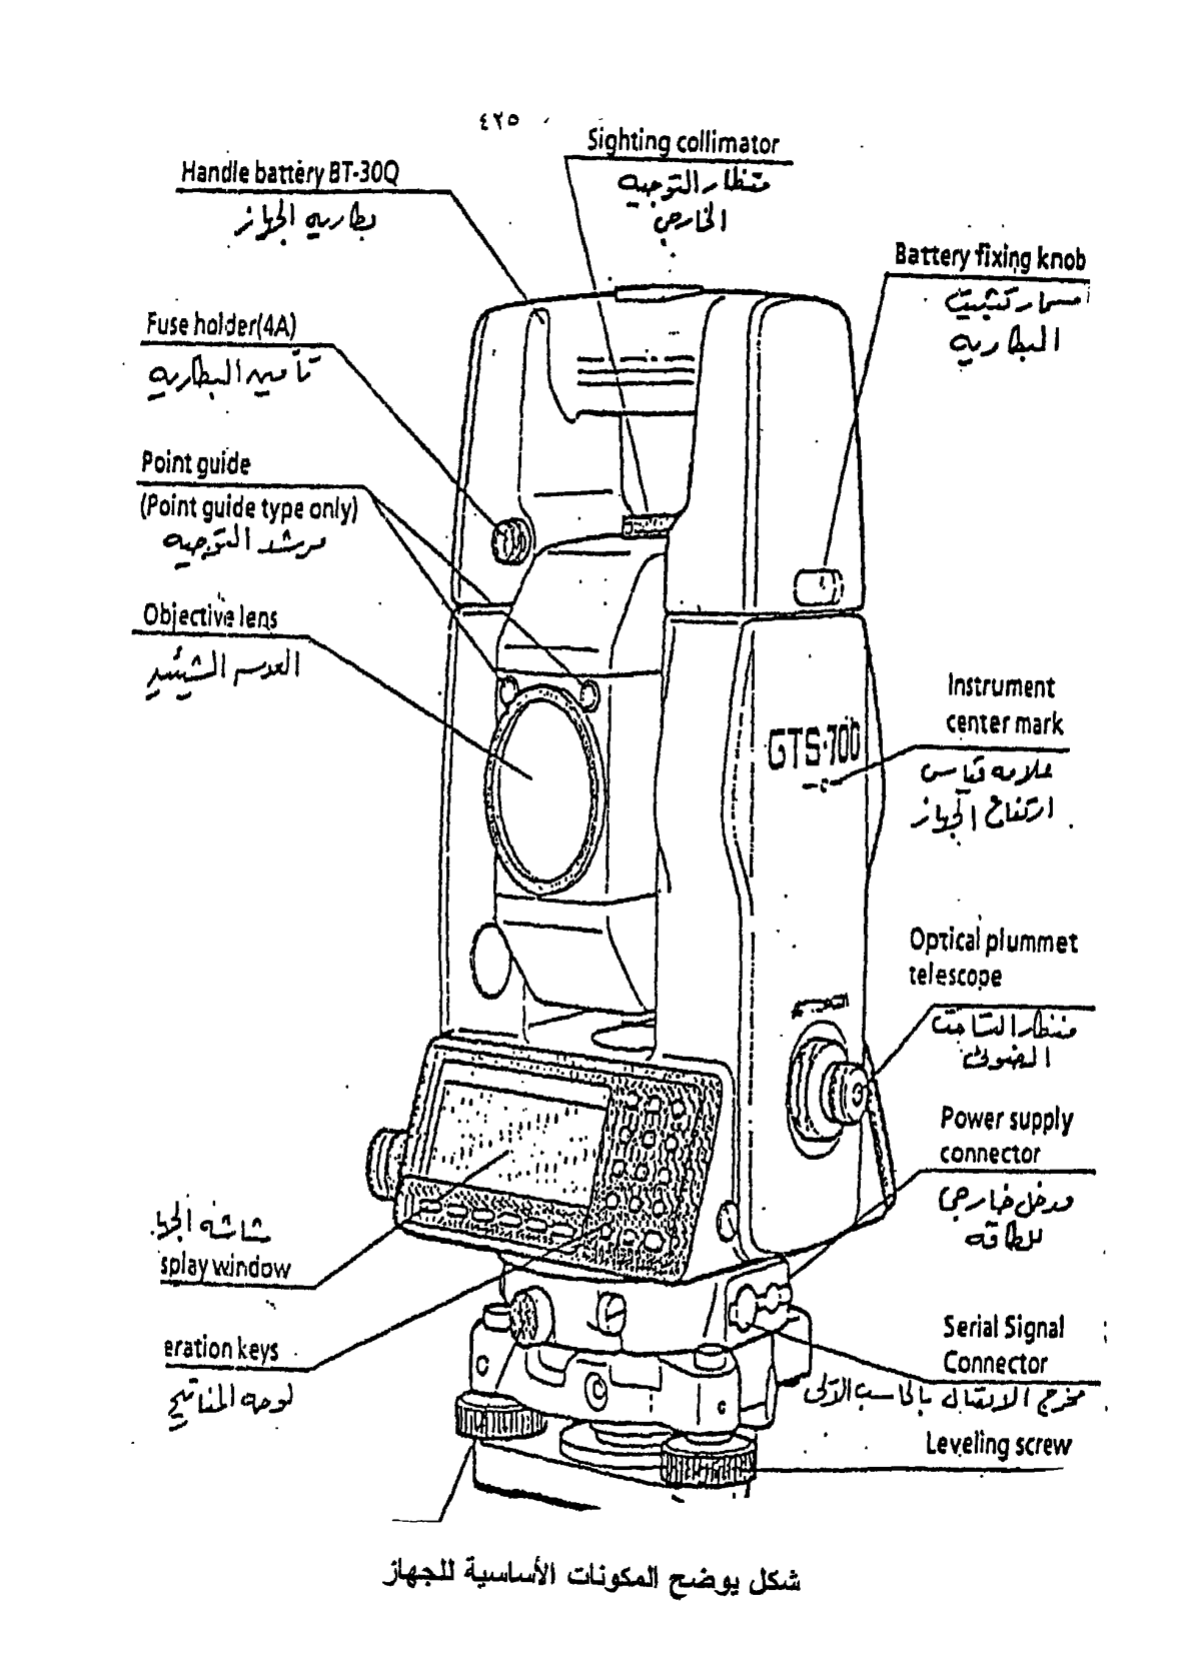 ٤٢٥
Sighting collimator
منظار التوجيه
الخارجي
Handle battery BT-30Q
بطاريه الجهاز
Battery fixing knob
مسمار تثبيت
البطاريه
Fuse holder(4A)
تأمين البطاريه
Point guide
(Point guide type only)
مرشد التوجيه
Objective lens
العدسه الشيئيه
Instrument
center mark
علامه قياس
ارتفاع الجهاز
GTS-700
Optical plummet
telescope
منظار التسامت
الضوئى
Power supply
connector
مدخل خارجي
للطاقه
شاشه
splay window
eration keys
لوحه المفاتيح
Serial Signal
Connector
مخرج الاتصال بالحاسب الآلى
Leveling screw
شكل يوضح المكونات الأساسية للجهاز